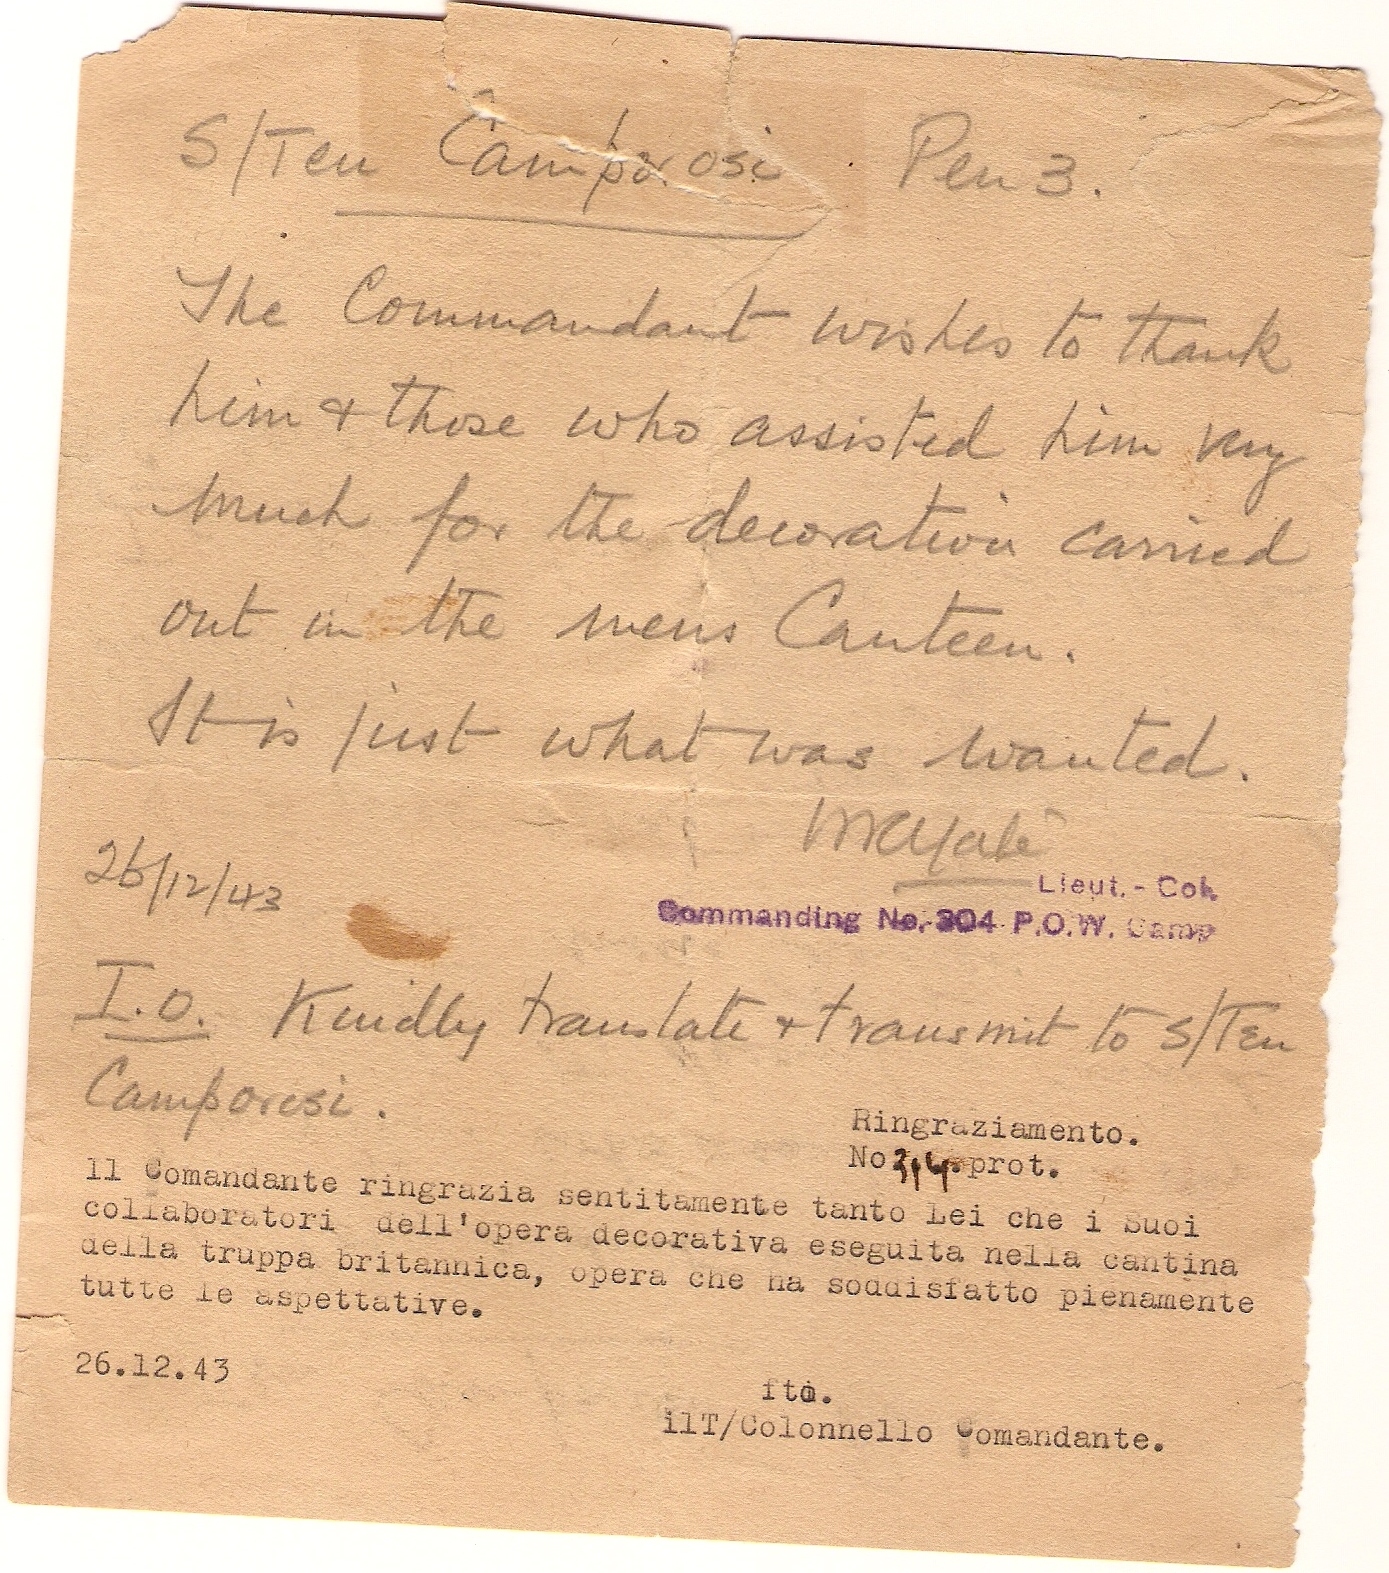 S/Ten Camporosi Pen 3.
The Commandant wishes to thank
him & those who assisted him very
much for the decoration carried
out in the mens Canteen.
It is just what was wanted.
Lieut.- Col.
26/12/43
Commanding No. 304 P.O.W. Camp
I.O. Kindly translate & transmit to S/Ten
Camporesi.
Ringraziamento.
No 314.prot.
Il Comandante ringrazia sentitamente tanto Lei che i Suoi
collaboratori dell'opera decorativa eseguita nella cantina
della truppa britannica, opera che ha soddisfatto pienamente
tutte le aspettative.
26.12.43
fto.
ilT/Colonnello Comandante.